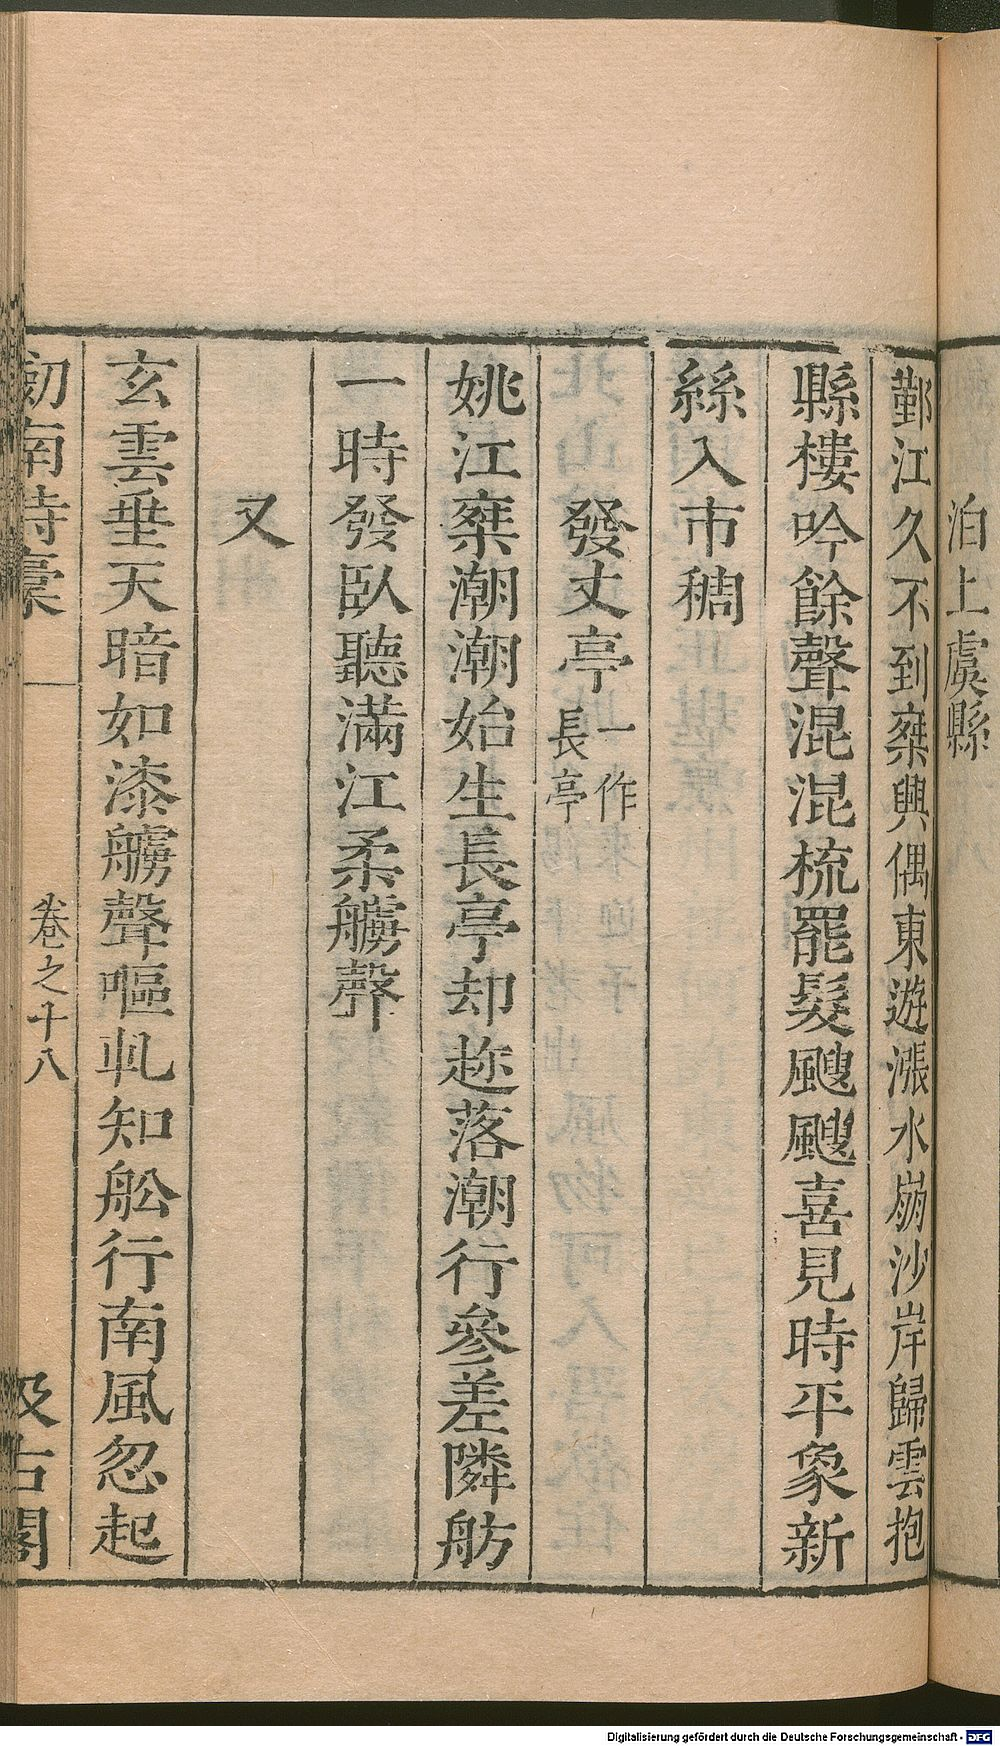 泊上虞縣
鄞江久不到乗興偶東遊漲水崩沙岸歸雲抱
縣樓吟餘聲混混梳罷髮颼颼喜見時平象新
絲入市稠
發丈亭一作長亭
姚江乗潮潮始生長亭却趂落潮行參差隣舫
一時發臥聽滿江柔艣聲
又
玄雲垂天暗如漆艣聲嘔軋知舩行南風忽起
劎南詩稾 卷之十八 汲古閣
Digitalisierung gefördert durch die Deutsche Forschungsgemeinschaft - DFG